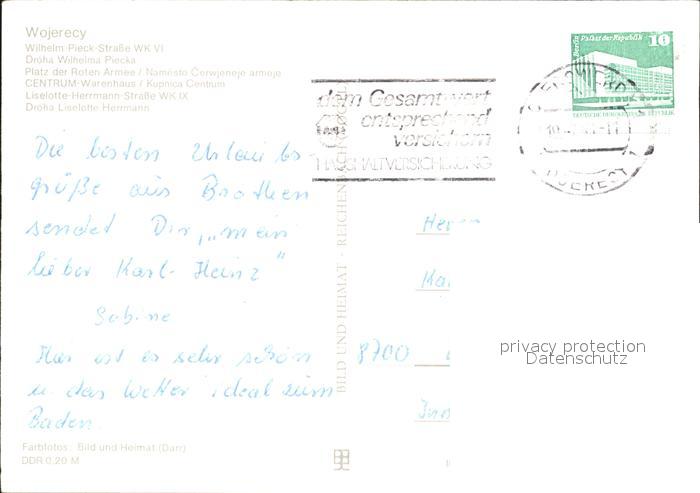 Wojerecy
Wilhelm-Pieck-Straße WK VI
Dróha Wilhelma Piecka
Platz der Roten Armee / Naměsto Čerwjeneje armeje
CENTRUM-Warenhaus / Kupnica Centrum
Liselotte-Herrmann-Straße WK IX
Dróha Liselotte Herrmann
dem Gesamtwert
entsprechend
versichern
HAUSHALTVERSICHERUNG
Berlin, Palast der Republik
10
DEUTSCHE DEMOKRATISCHE REPUBLIK
Die besten Urlaubs
grüße aus Brothen
sendet Dir, „mein
lieber Karl-Heinz"
Sabine
Hier ist es sehr schön
u. das Wetter ideal zum
Baden.
BILD UND HEIMAT · REICHENBACH
Herrn
8700
privacy protection
Datenschutz
Farbfotos: Bild und Heimat (Darr)
DDR 0,20 M